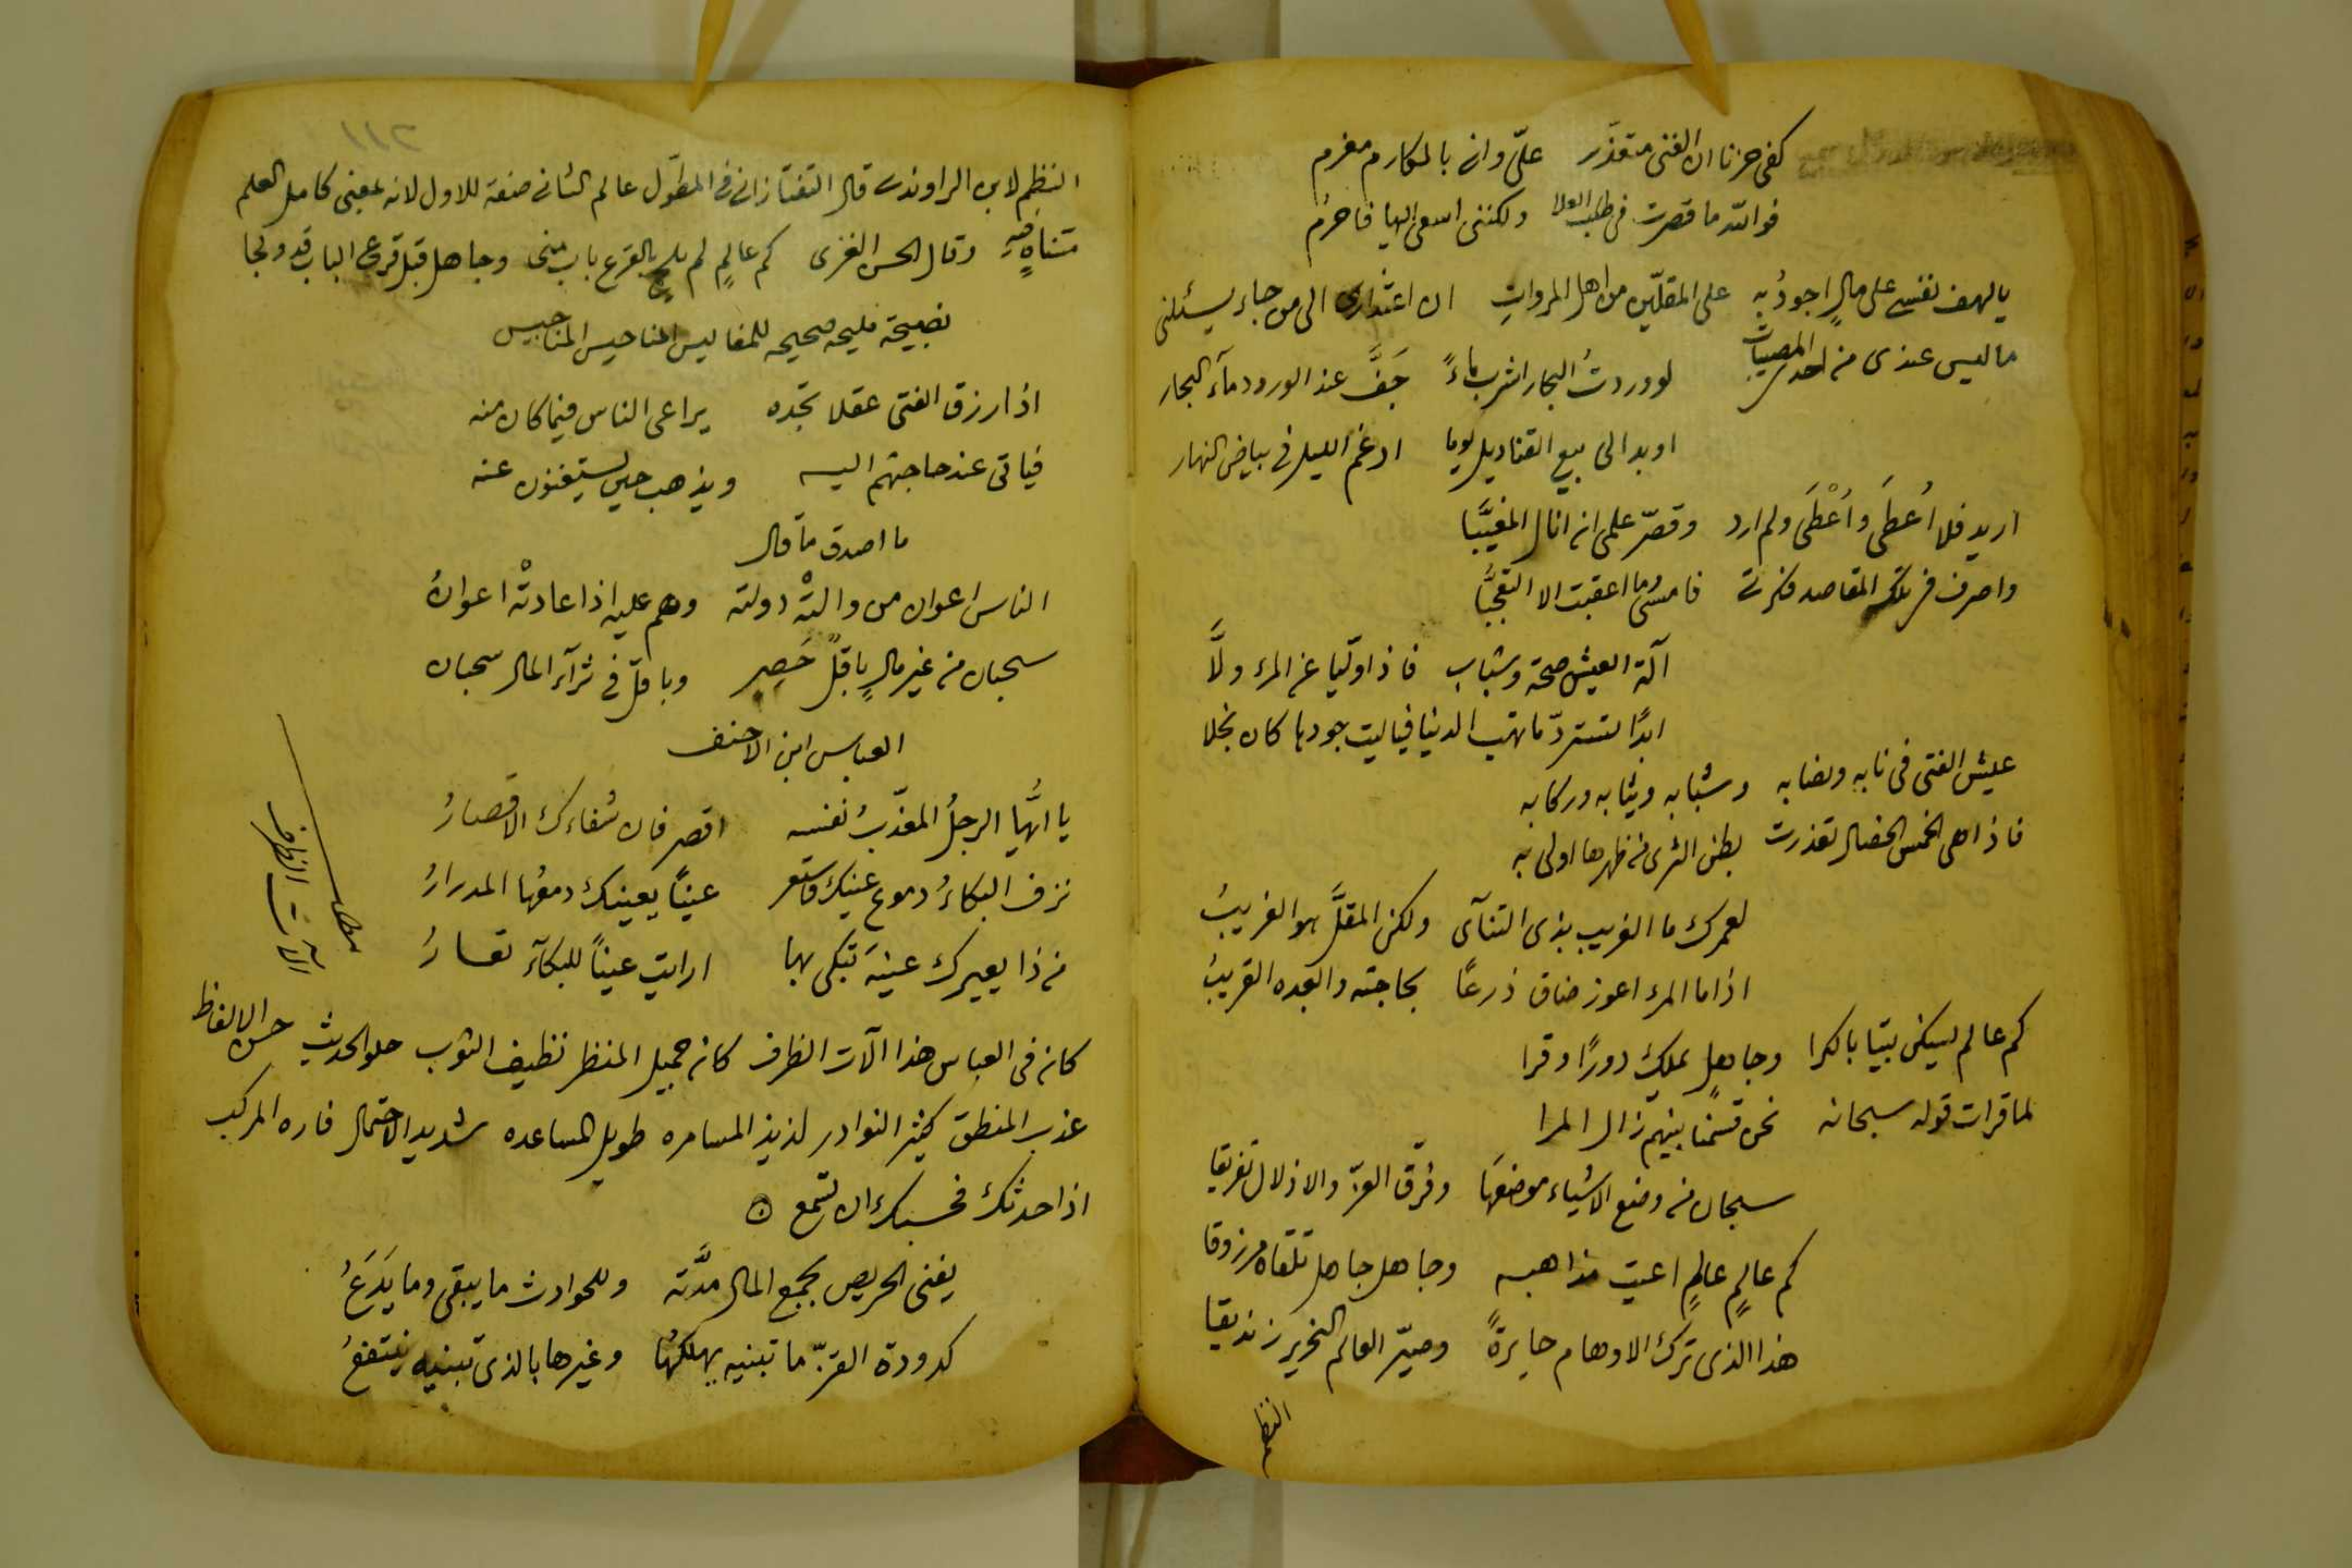 كفى حزنا ان الغنى متعذّر علىّ وانى بالمكارم مغرم
فوالله ما قصرت فى طلب العلا ولكننى اسعى اليها فاحرم
يا لهف نفسى على مالٍ اجودُ به على المقلّين من اهل المروات ان اعتذارى الى من جاء يسئلنى
ما ليس عندى من احدى المصيبات لو وردتُ البحار اشرب ماءً جَفَّ عند الورود مآء البحار
او بدا لى بيع القناديل يوما ادغم الليل فى بياض النهار
اريد فلا اُعطَى واُعْطَى ولم ارد وقصّر علمى ان انال المغيَّبا
واصرف فى تلك المقاصد فكرتى فامسى وما اعقبت الا التعجُّبا
آلة العيش صحة وشباب فاذا ولّيا عن المرء ولَّا
ابدًا تستردّ ما تهب الدنيا فياليت جودها كان بخلا
عيش الفتى فى نابه ونصابه وشبابه وثيابه وركابه
فاذا هى الخمس الخصال تعذرت بطن الثرى من ظهرها اولى به
لعمرك ما الغريب بذى التنآى ولكن المقلَّ هو الغريبُ
اذا ما المرء اعوز ضاق ذرعًا بحاجته وابعده القريبُ
كم عالم يسكن بيتا بالكرا وجاهلٍ يملك دورًا وقرا
لما قرات قوله سبحانه نحن قسمنا بينهم زال المرا
سبحان من وضع الاشياء موضعَها وفرّق العزّ والاذلال تفريقا
كم عالمٍ عالمٍ اعيت مذاهبه وجاهل جاهل تلقاه مرزوقا
هذا الذى ترك الاوهام حايرةً وصيّر العالم النحرير زنديقا
النظم
٢١١
النظم لابن الراوندى قال التفتازانى فى المطوّل عالم الثانى صفة للاول لانه بمعنى كامل العلم
متناهٍ فيه وقال الحسن الغزى كم عالمٍ لم يلج بالقرع باب منى وجاهل قبل قرع الباب قد ولجا
نصيحة مليحه صحيحه للمفاليس المناحيس
اذا رزق الفتى عقلا تجده يراعى الناس فيما كان منه
فياتى عند حاجتهم اليه ويذهب حين يستغنون عنه
ما اصدق ما قال
الناس اعوان من والتْه دولته وهم عليه اذا عادتْه اعوانُ
سحبان من غير مالٍ باقلٌ حَصِر وباقلٌ فى ثرآء المال سحبان
العباس ابن الاحنف
يا ايُّها الرجلُ المعذّبُ نفسه اقصر فان شفاءك الاقصارُ
نزف البكاءُ دموع عينك فاستعر عينًا يعينك دمعُها المدرارُ
من ذا يعيرك عينَه تبكى بها ارايت عيناً للبكآء تعارُ
مطلب آلآت الظرف
كان فى العباس هذا آلات الظرف كان جميل المنظر نظيف الثوب حلو الحديث حسن الالفاظ
عذب المنطق كثير النوادر لذيذ المسامره طويل المساعده شديد الاحتمال فاره المركب
اذا حدثك فحسبك ان تسمع
يفنى الحريص بجمع المال مدَّته وللحوادث ما يبقى وما يَدَعُ
كدودة القزّ ما تبنيه يهلكُها وغيرها بالذى تبنيه ينتفعُ